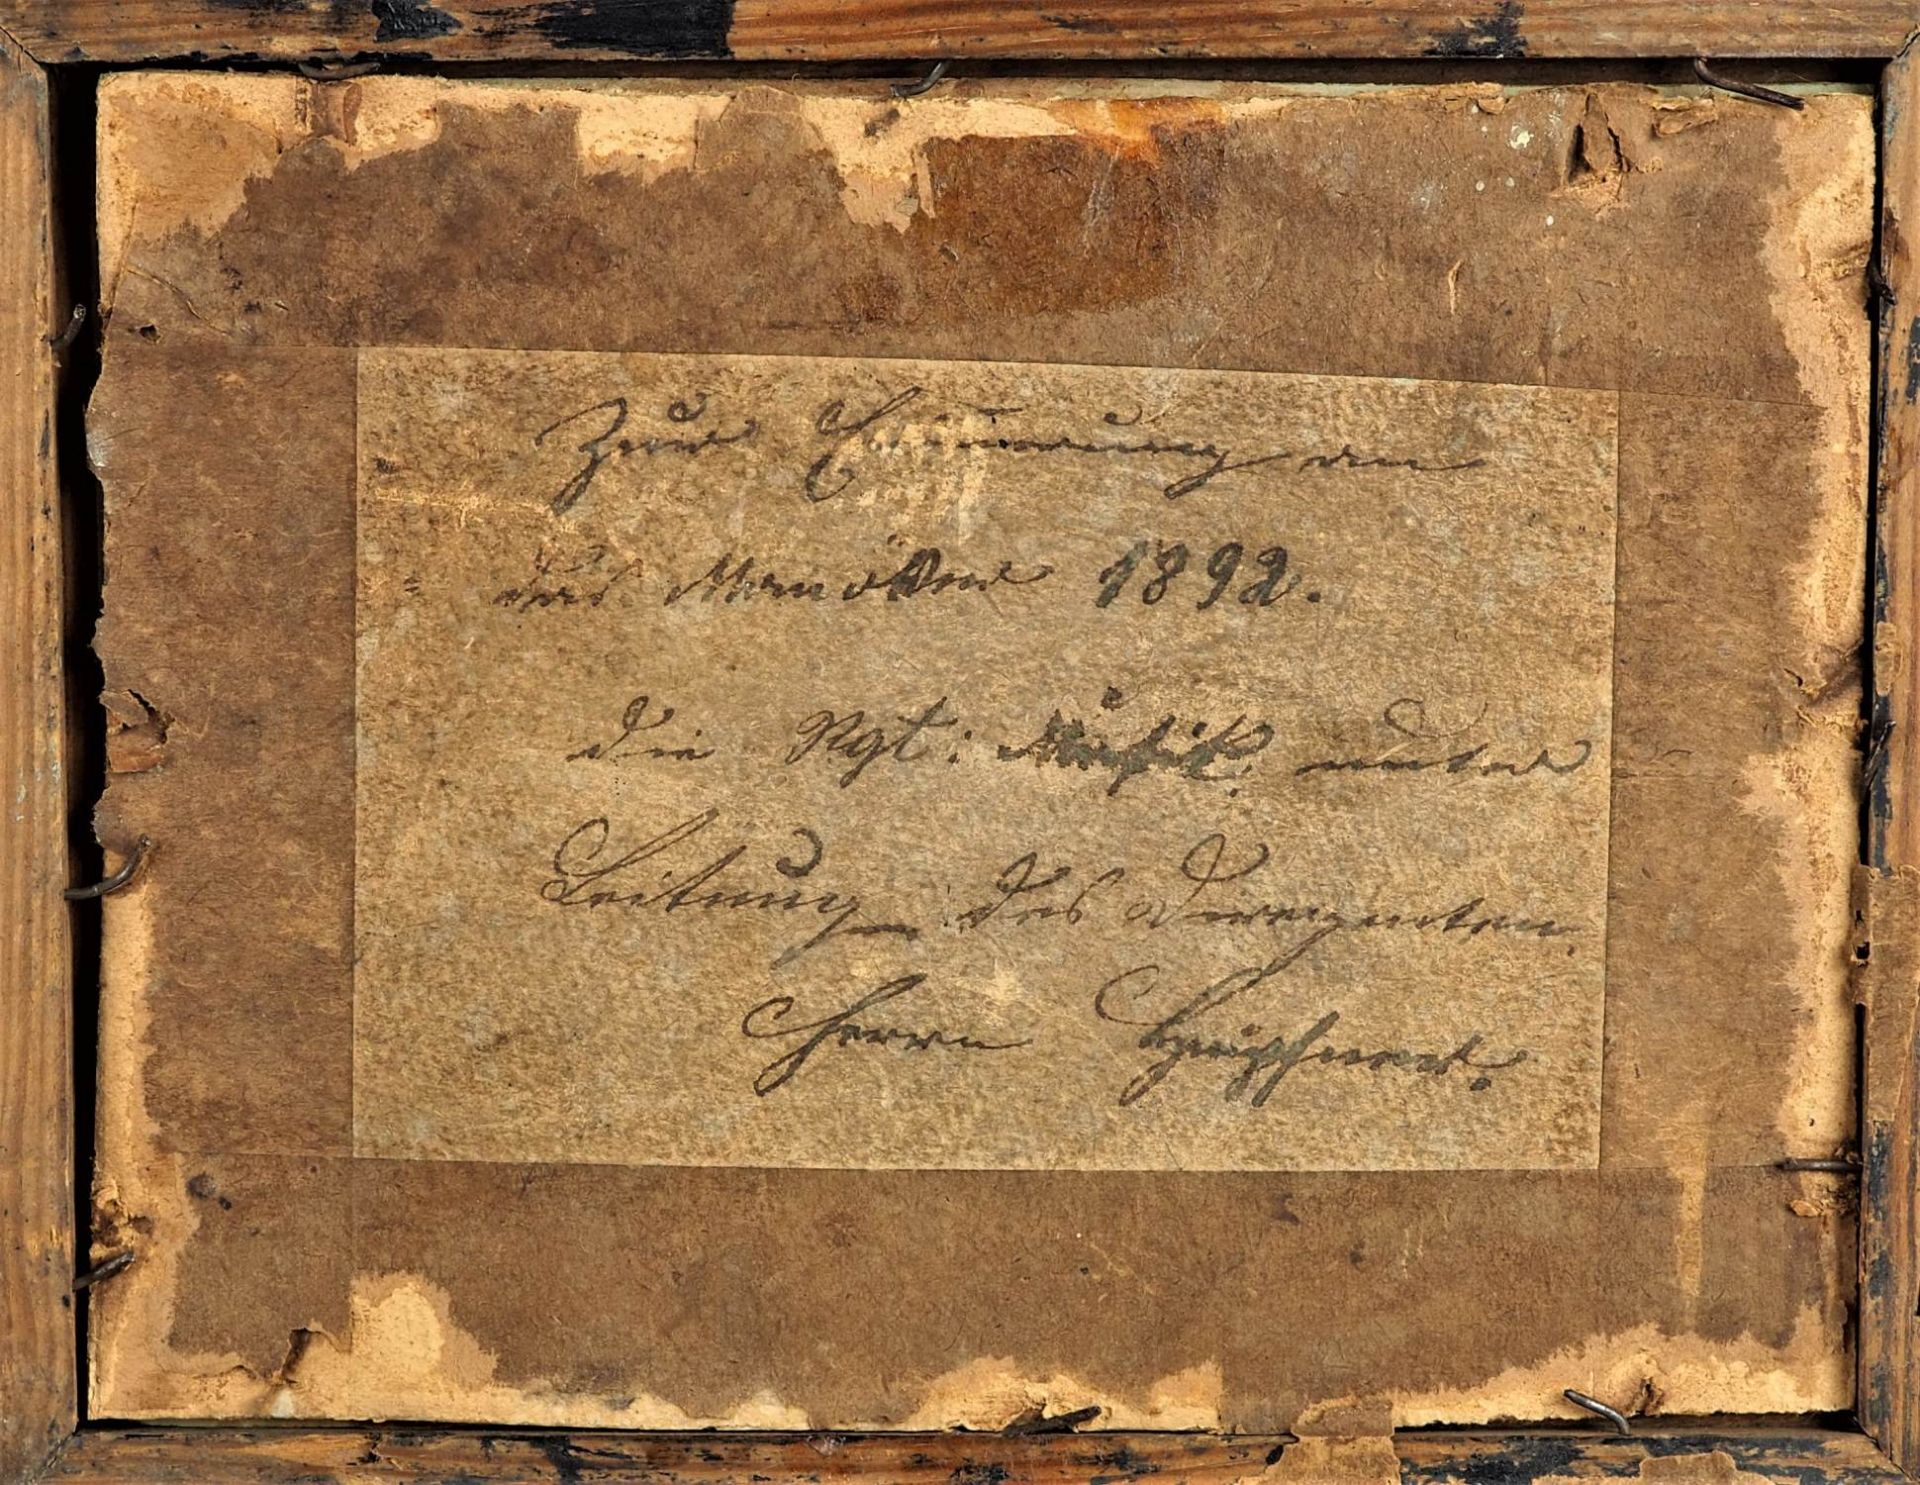 Zur Erinnerung an
das Manöver 1892.
die Rgt: Musik. unter
Leitung des Direigenten.
Herrn